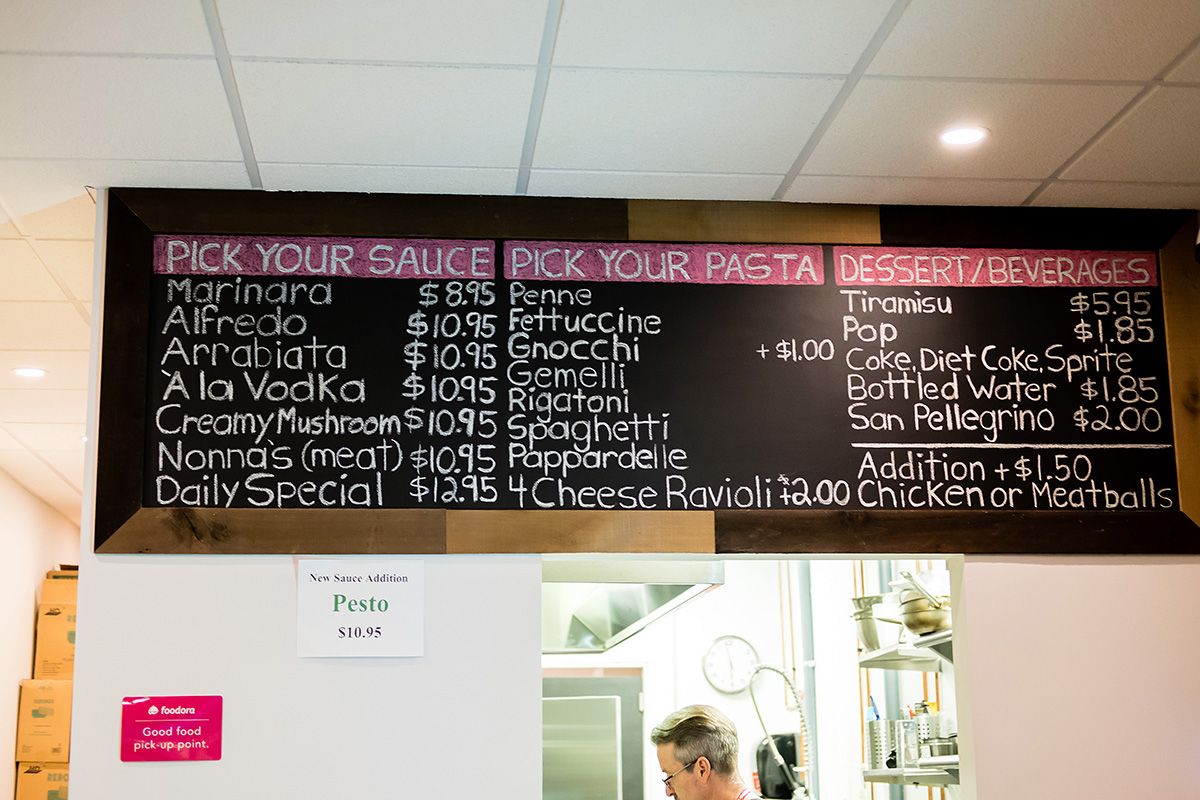 PICK YOUR SAUCE
Marinara $8.95
Alfredo $10.95
Arrabiata $10.95
À la Vodka $10.95
Creamy Mushroom $10.95
Nonna's (meat) $10.95
Daily Special $12.95
PICK YOUR PASTA
Penne
Fettuccine
Gnocchi +$1.00
Gemelli
Rigatoni
Spaghetti
Pappardelle
4 Cheese Ravioli +2.00
DESSERT/BEVERAGES
Tiramisu $5.95
Pop $1.85
Coke, Diet Coke, Sprite
Bottled Water $1.85
San Pellegrino $2.00
Addition +$1.50
Chicken or Meatballs
New Sauce Addition
Pesto
$10.95
foodora
Good food
pick-up point.